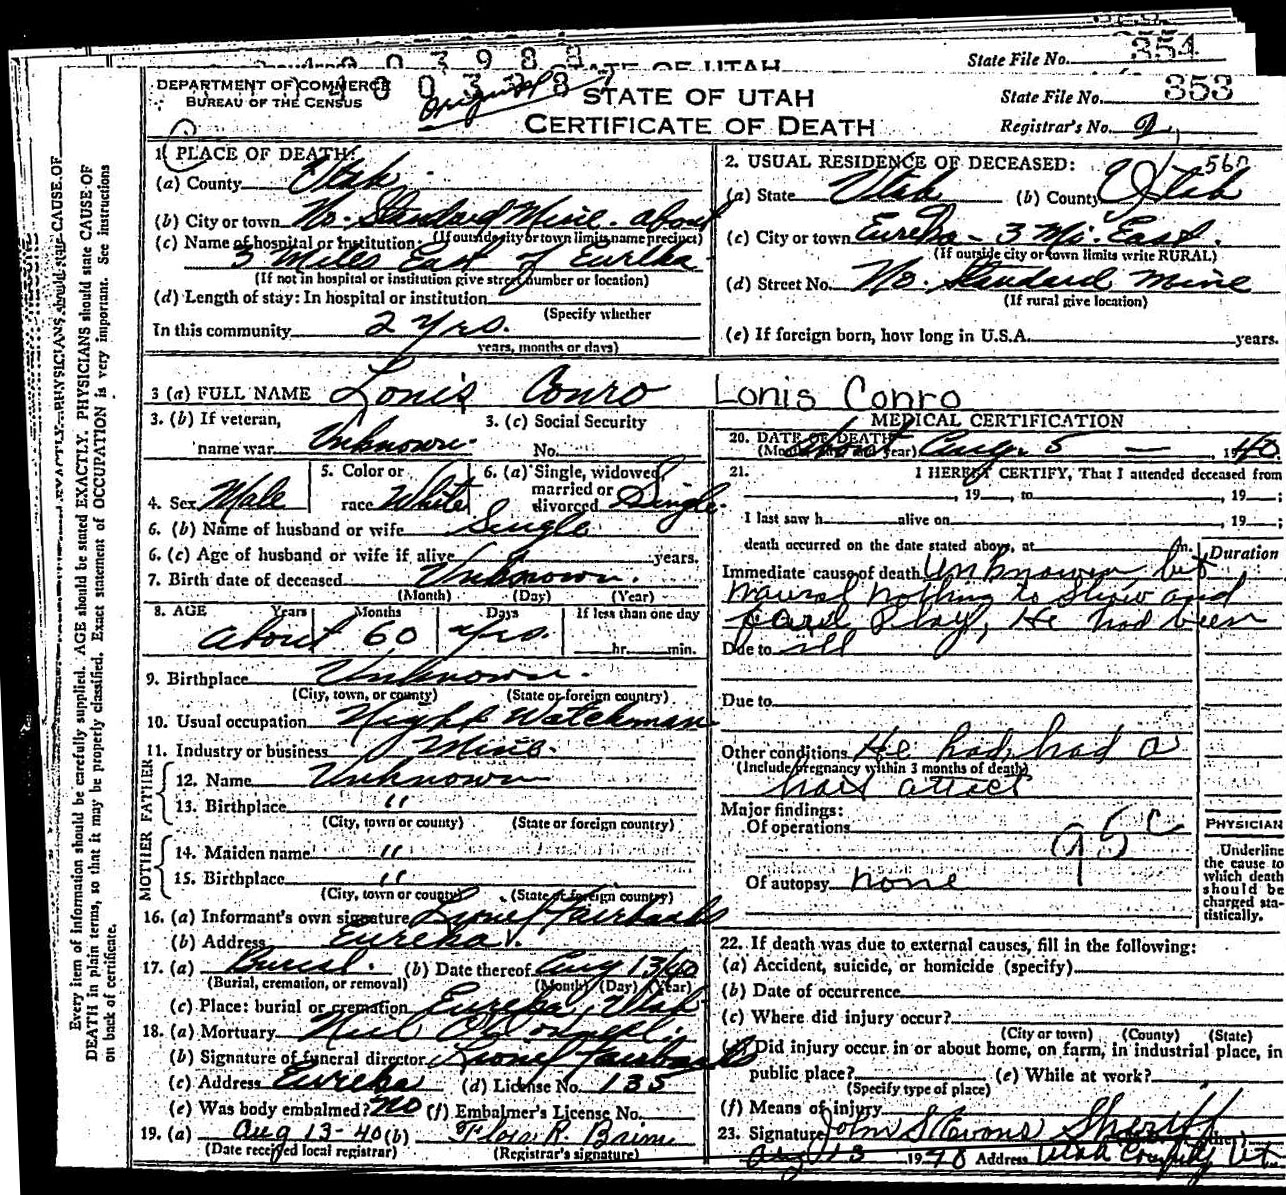 State File No. 354
STATE OF UTAH
DEPARTMENT OF COMMERCE
BUREAU OF THE CENSUS
original
STATE OF UTAH
State File No. 353
CERTIFICATE OF DEATH
Registrar's No. 2
1. PLACE OF DEATH:
(a) County Utah
(b) City or town No. Standard Mine. about
(If outside city or town limits name precinct)
(c) Name of hospital or institution:
3 Miles East of Eureka
(If not in hospital or institution give street number or location)
(d) Length of stay: In hospital or institution
(Specify whether
In this community 2 yrs.
years, months or days)
2. USUAL RESIDENCE OF DECEASED: 560
(a) State Utah (b) County Utah
(c) City or town Eureka - 3 Mi. East.
(If outside city or town limits write RURAL)
(d) Street No. No. Standard Mine
(If rural give location)
(e) If foreign born, how long in U.S.A. years.
3 (a) FULL NAME Lonis Conro Lonis Conro
3. (b) If veteran, 3. (c) Social Security
name war. Unknown. No.
4. Sex Male 5. Color or race White 6. (a) Single, widowed, married or divorced Single.
6. (b) Name of husband or wife Single
6. (c) Age of husband or wife if alive years.
7. Birth date of deceased Unknown.
(Month) (Day) (Year)
8. AGE Years Months Days If less than one day
about 60 yrs. hr. min.
9. Birthplace Unknown.
(City, town, or county) (State or foreign country)
10. Usual occupation Night Watchman
11. Industry or business Mine.
FATHER
12. Name Unknown
13. Birthplace "
(City, town or county) (State or foreign country)
MOTHER
14. Maiden name "
15. Birthplace "
(City, town or county) (State or foreign country)
16. (a) Informant's own signature Lionel Fairbanks
(b) Address Eureka.
17. (a) Burial. (b) Date thereof Aug 13/40
(Burial, cremation, or removal) (Month) (Day) (Year)
(c) Place: burial or cremation Eureka, Utah
18. (a) Mortuary
(b) Signature of funeral director Lionel Fairbanks
(c) Address Eureka (d) License No. 135
(e) Was body embalmed? No (f) Embalmer's License No.
19. (a) Aug 13-40 (b) R.
(Date received local registrar) (Registrar's signature)
MEDICAL CERTIFICATION
20. DATE OF DEATH about Aug. 5 — 1940.
(Month, day and year)
21. I HEREBY CERTIFY, That I attended deceased from
, 19 , to , 19 ;
I last saw h alive on , 19 ;
death occurred on the date stated above, at m.
Duration
Immediate cause of death Unknown but
naural nothing to show and
foul play, He had been
Due to ill
Due to
Other conditions He had had a
(Include pregnancy within 3 months of death)
hart attect
Major findings:
Of operations 95c
Of autopsy none
PHYSICIAN
Underline
the cause to
which death
should be
charged sta-
tistically.
22. If death was due to external causes, fill in the following:
(a) Accident, suicide, or homicide (specify)
(b) Date of occurrence
(c) Where did injury occur?
(City or town) (County) (State)
(d) Did injury occur in or about home, on farm, in industrial place, in
public place? (e) While at work?
(Specify type of place)
(f) Means of injury
23. Signature John S Evans Sheriff
Aug 13 1940 Address Utah County Ut.
Every item of information should be carefully supplied. AGE should be stated EXACTLY. PHYSICIANS should state CAUSE OF
DEATH in plain terms, so that it may be properly classified. Exact statement of OCCUPATION is very important. See instructions
on back of certificate.